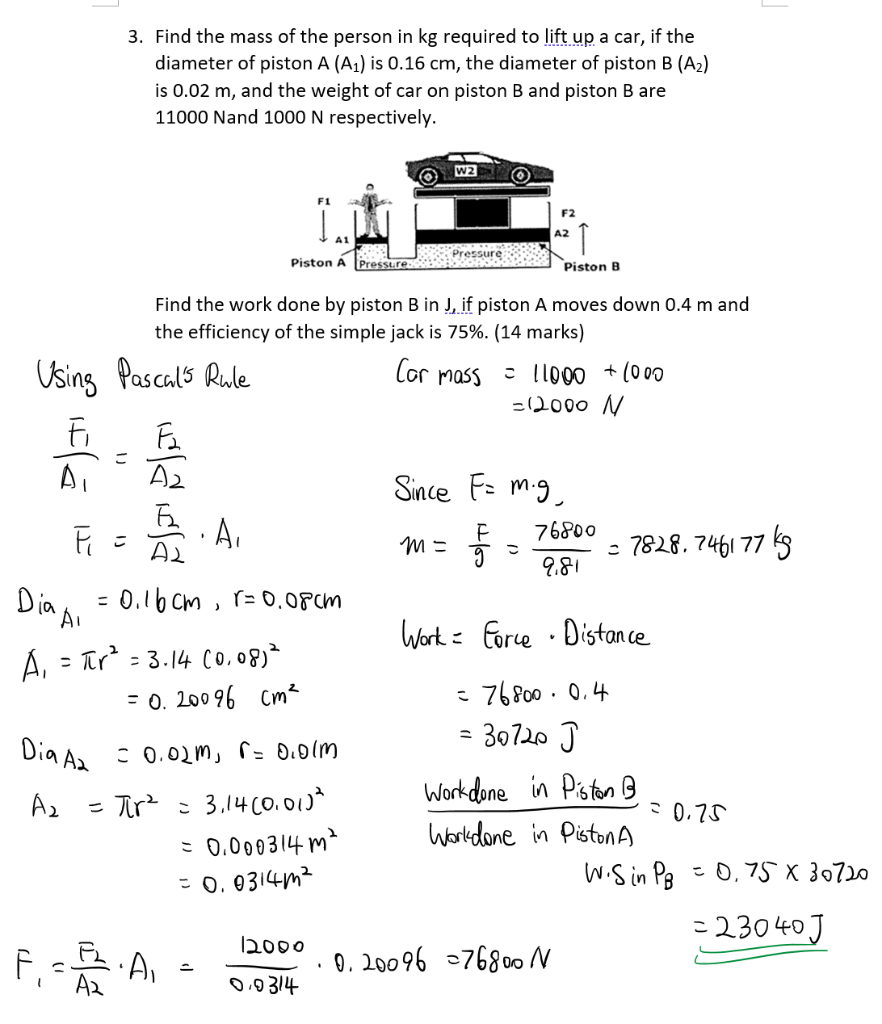 3. Find the mass of the person in kg required to lift up a car, if the
diameter of piston A (A₁) is 0.16 cm, the diameter of piston B (A₂)
is 0.02 m, and the weight of car on piston B and piston B are
11000 Nand 1000 N respectively.
W2
F1
F2
A1
A2
Piston A
Pressure
Pressure
Piston B
Find the work done by piston B in J, if piston A moves down 0.4 m and
the efficiency of the simple jack is 75%. (14 marks)
Using Pascal's Rule
F₁/A₁ = F₂/A₂
F₁ = F₂/A₂ · A₁
Dia A₁ = 0.16cm, r=0.08cm
A₁ = πr² = 3.14 (0.08)²
= 0.20096 cm²
Dia A₂ = 0.02m, r= 0.01m
A₂ = πr² = 3.14(0.01)²
= 0.000314 m²
= 0.0314m²
F₁ = F₂/A₂ · A₁ = 12000/0.0314 · 0.20096 = 76800 N
Car mass = 11000 + 1000
= 12000 N
Since F= m·g,
m = F/g = 76800/9.81 = 7828.746177 kg
Work = Force · Distance
= 76800 · 0.4
= 30720 J
Workdone in Piston B / Workdone in Piston A = 0.75
W.S in P_B = 0.75 x 30720
= 23040J